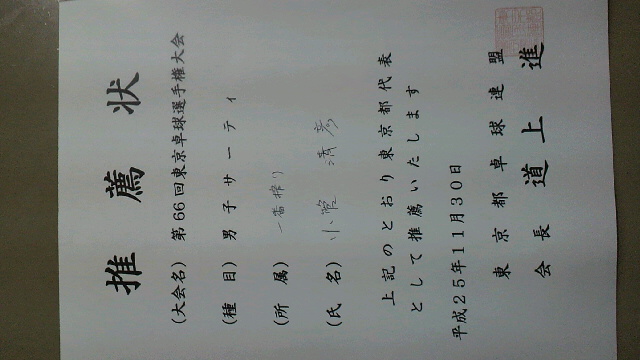 推薦状
(大会名) 第66回東京卓球選手権大会
(種 目) 男子サーティ
(所 属) 一番搾り
(氏 名) 小菅 清彦
上記のとおり東京都代表
として推薦いたします
平成25年11月30日
東京都卓球連盟
会長 道上 進